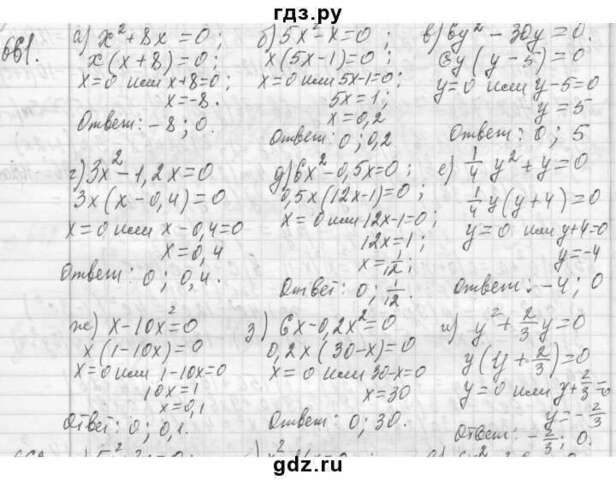 гдз.ру
661.
а) x² + 8x = 0;
x(x + 8) = 0;
x = 0 или x + 8 = 0;
x = -8.
Ответ: -8; 0.
б) 5x² - x = 0;
x(5x - 1) = 0;
x = 0 или 5x - 1 = 0;
5x = 1;
x = 0,2
Ответ: 0; 0,2
в) 6y² - 30y = 0.
6y(y - 5) = 0
y = 0 или y - 5 = 0
y = 5
Ответ: 0; 5
г) 3x² - 1,2x = 0
3x(x - 0,4) = 0
x = 0 или x - 0,4 = 0
x = 0,4
Ответ: 0; 0,4.
д) 6x² - 0,5x = 0;
0,5x(12x - 1) = 0;
x = 0 или 12x - 1 = 0;
12x = 1;
x = 1/12;
Ответ: 0; 1/12.
е) 1/4 y² + y = 0
1/4 y(y + 4) = 0
y = 0 или y + 4 = 0
y = -4
Ответ: -4; 0
ж) x - 10x² = 0
x(1 - 10x) = 0
x = 0 или 1 - 10x = 0
10x = 1
x = 0,1
Ответ: 0; 0,1.
з) 6x - 0,2x² = 0
0,2x(30 - x) = 0
x = 0 или 30 - x = 0
x = 30
Ответ: 0; 30.
и) y² + 2/3 y = 0
y(y + 2/3) = 0
y = 0 или y + 2/3 = 0
y = -2/3
Ответ: -2/3; 0.
gdz.ru